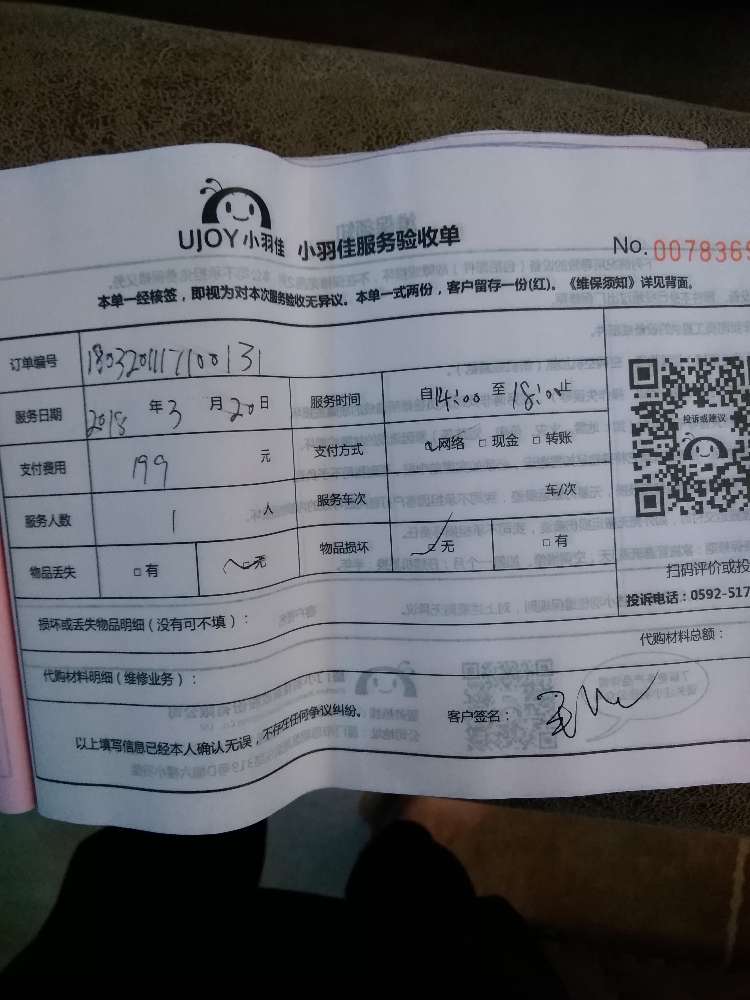 UJOY小羽佳 小羽佳服务验收单
No. 0078369
本单一经核签，即视为对本次服务验收无异议。本单一式两份，客户留存一份(红)。《维保须知》详见背面。
订单编号 1803201117100131
服务日期 2018 年 3 月 20 日 服务时间 自14:00 至 18:00止
支付费用 199 元 支付方式 □网络 □ 现金 □ 转账
服务人数 1 人 服务车次 车/次
物品丢失 □ 有 □无 物品损坏 □ 无 □ 有
投诉或建议
扫码评价或投
投诉电话：0592-517
损坏或丢失物品明细（没有可不填）：
代购材料总额：
代购材料明细（维修业务）：
以上填写信息已经本人确认无误，不存在任何争议纠纷。
客户签名：